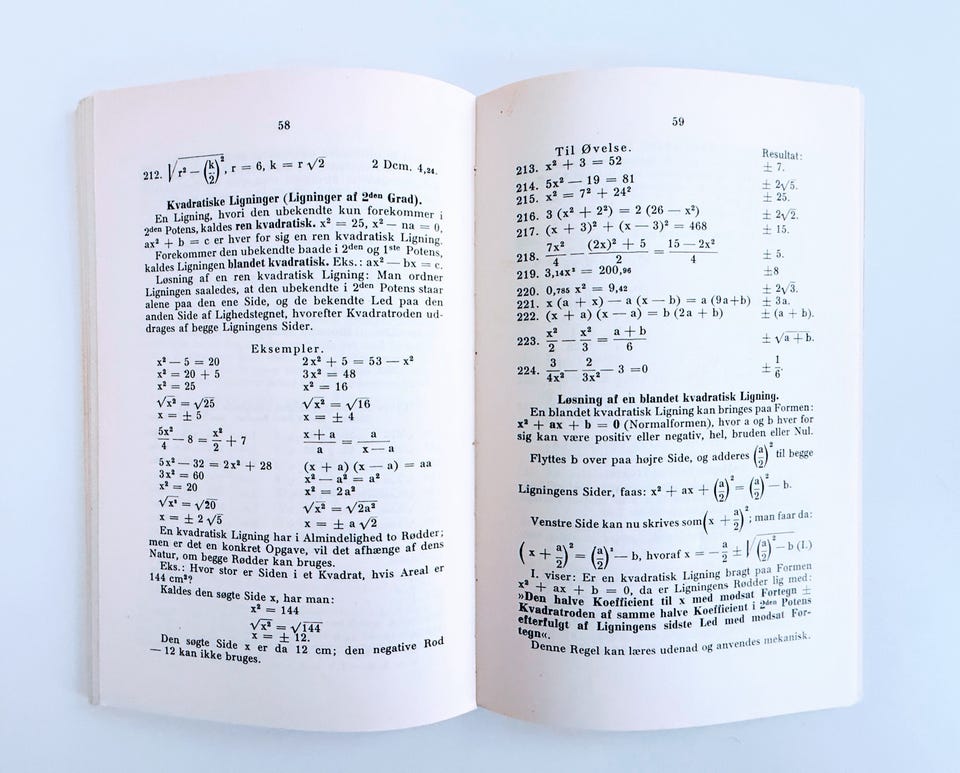 58
212. √(r² — (k/2)²), r = 6, k = r √2 2 Dcm. 4,24.
Kvadratiske Ligninger (Ligninger af 2den Grad).
En Ligning, hvori den ubekendte kun forekommer i
2den Potens, kaldes ren kvadratisk. x² = 25, x² — na = 0,
ax² + b = c er hver for sig en ren kvadratisk Ligning.
Forekommer den ubekendte baade i 2den og 1ste Potens,
kaldes Ligningen blandet kvadratisk. Eks.: ax² — bx = c.
Løsning af en ren kvadratisk Ligning: Man ordner
Ligningen saaledes, at den ubekendte i 2den Potens staar
alene paa den ene Side, og de bekendte Led paa den
anden Side af Lighedstegnet, hvorefter Kvadratroden ud-
drages af begge Ligningens Sider.
Eksempler.
x² — 5 = 20 2x² + 5 = 53 — x²
x² = 20 + 5 3x² = 48
x² = 25 x² = 16
√x² = √25 √x² = √16
x = ± 5 x = ± 4
5x²/4 — 8 = x²/2 + 7 (x + a)/a = a/(x — a)
5x² — 32 = 2x² + 28 (x + a) (x — a) = aa
3x² = 60 x² — a² = a²
x² = 20 x² = 2a²
√x² = √20 √x² = √2a²
x = ± 2 √5 x = ± a √2
En kvadratisk Ligning har i Almindelighed to Rødder;
men er det en konkret Opgave, vil det afhænge af dens
Natur, om begge Rødder kan bruges.
Eks.: Hvor stor er Siden i et Kvadrat, hvis Areal er
144 cm²?
Kaldes den søgte Side x, har man:
x² = 144
√x² = √144
x = ± 12.
Den søgte Side x er da 12 cm; den negative Rod
— 12 kan ikke bruges.
59
Til Øvelse.
Resultat:
213. x² + 3 = 52 ± 7.
214. 5x² — 19 = 81 ± 2√5.
215. x² = 7² + 24² ± 25.
216. 3 (x² + 2²) = 2 (26 — x²) ± 2√2.
217. (x + 3)² + (x — 3)² = 468 ± 15.
218. 7x²/4 — ((2x)² + 5)/2 = (15 — 2x²)/4 ± 5.
219. 3,14x² = 200,96 ±8
220. 0,785 x² = 9,42 ± 2√3.
221. x (a + x) — a (x — b) = a (9a+b) ± 3a.
222. (x + a) (x — a) = b (2a + b) ± (a + b).
223. x²/2 — x²/3 = (a + b)/6 ± √(a + b).
224. 3/4x² — 2/3x² — 3 =0 ± 1/6.
Løsning af en blandet kvadratisk Ligning.
En blandet kvadratisk Ligning kan bringes paa Formen:
x² + ax + b = 0 (Normalformen), hvor a og b hver for
sig kan være positiv eller negativ, hel, bruden eller Nul.
Flyttes b over paa højre Side, og adderes (a/2)² til begge
Ligningens Sider, faas: x² + ax + (a/2)² = (a/2)² — b.
Venstre Side kan nu skrives som (x + a/2)²; man faar da:
(x + a/2)² = (a/2)² — b, hvoraf x = — a/2 ± √((a/2)² — b) (I.)
I. viser: Er en kvadratisk Ligning bragt paa Formen
x² + ax + b = 0, da er Ligningens Rødder lig med:
»Den halve Koefficient til x med modsat Fortegn ±
Kvadratroden af samme halve Koefficient i 2den Potens
efterfulgt af Ligningens sidste Led med modsat For-
tegn«.
Denne Regel kan læres udenad og anvendes mekanisk.